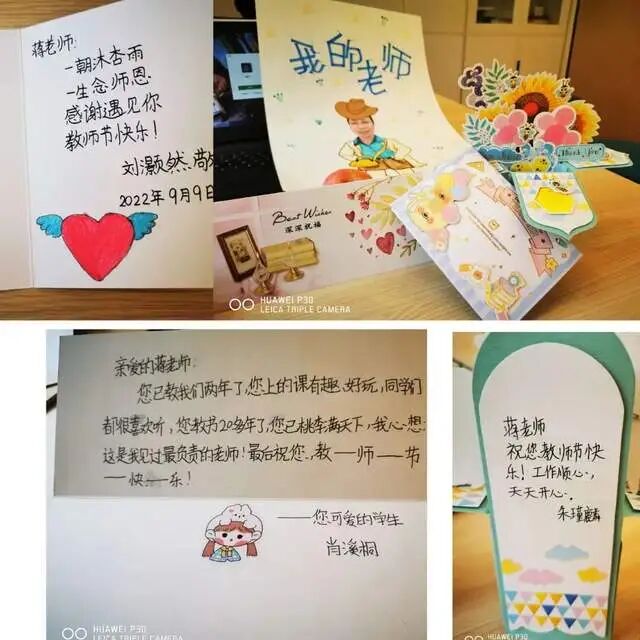 蒋老师:
一朝沐杏雨
一生念师恩
感谢遇见你
教师节快乐!
刘灏然
2022年9月9日
我的
老师
Best Wishes
深深祝福
Thank You
HUAWEI P30
LEICA TRIPLE CAMERA
亲爱的蒋老师:
您已教我们两年了,您上的课有趣、好玩,同学们
都很喜欢听,您教书20多年了,您已桃李满天下,我心想:
这是我见过最负责的老师!最后祝您,教——师——节
——快——乐!
——您可爱的学生
肖溪桐
HUAWEI P30
LEICA TRIPLE CAMERA
蒋老师
祝您教师节快
乐!工作顺心,
天天开心.
朱瑾麟
HUAWEI P30